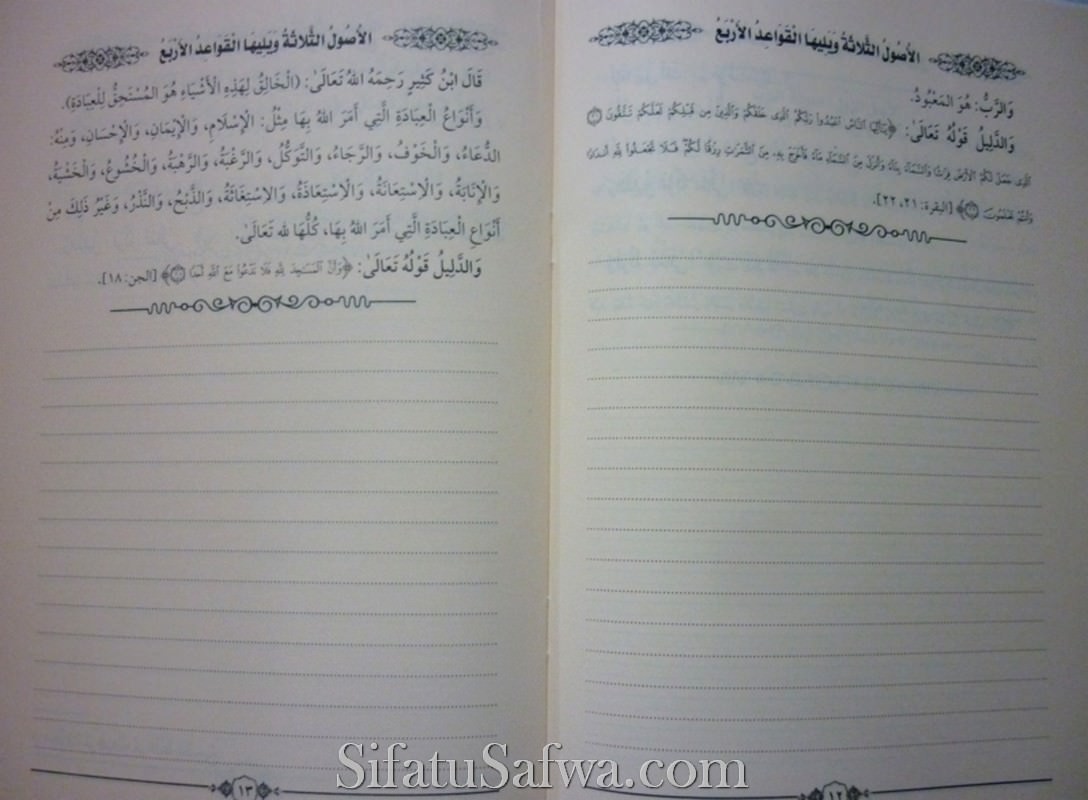 الأُصُولُ الثَّلَاثَةُ وَيَلِيهَا الْقَوَاعِدُ الأَرْبَعُ
وَالرَّبُّ: هُوَ المَعْبُودُ.
وَالدَّلِيلُ قَوْلُهُ تَعَالَىٰ: ﴿يَٰٓأَيُّهَا ٱلنَّاسُ ٱعْبُدُوا۟ رَبَّكُمُ ٱلَّذِى خَلَقَكُمْ وَٱلَّذِينَ مِن قَبْلِكُمْ لَعَلَّكُمْ تَتَّقُونَ ۝٢١
ٱلَّذِى جَعَلَ لَكُمُ ٱلْأَرْضَ فِرَٰشًا وَٱلسَّمَآءَ بِنَآءً وَأَنزَلَ مِنَ ٱلسَّمَآءِ مَآءً فَأَخْرَجَ بِهِۦ مِنَ ٱلثَّمَرَٰتِ رِزْقًا لَّكُمْ ۖ فَلَا تَجْعَلُوا۟ لِلَّهِ أَندَادًا
وَأَنتُمْ تَعْلَمُونَ ۝٢٢﴾ [البقرة: ٢١، ٢٢].
١٢
الأُصُولُ الثَّلَاثَةُ وَيَلِيهَا الْقَوَاعِدُ الأَرْبَعُ
قَالَ ابْنُ كَثِيرٍ رَحِمَهُ اللهُ تَعَالَىٰ: (الْخَالِقُ لِهَذِهِ الْأَشْيَاءِ هُوَ المُسْتَحِقُّ لِلْعِبَادَةِ).
وَأَنْوَاعُ الْعِبَادَةِ الَّتِي أَمَرَ اللهُ بِهَا مِثْلُ: الْإِسْلَامِ، وَالْإِيمَانِ، وَالْإِحْسَانِ، وَمِنْهُ:
الدُّعَاءُ، وَالْخَوْفُ، وَالرَّجَاءُ، وَالتَّوَكُّلُ، وَالرَّغْبَةُ، وَالرَّهْبَةُ، وَالْخُشُوعُ، وَالْخَشْيَةُ،
وَالْإِنَابَةُ، وَالْاسْتِعَانَةُ، وَالْاسْتِعَاذَةُ، وَالاسْتِغَاثَةُ، وَالذَّبْحُ، وَالنَّذْرُ، وَغَيْرُ ذَلِكَ مِنْ
أَنْوَاعِ الْعِبَادَةِ الَّتِي أَمَرَ اللهُ بِهَا، كُلُّهَا لله تَعَالَىٰ.
وَالدَّلِيلُ قَوْلُهُ تَعَالَىٰ: ﴿وَأَنَّ ٱلْمَسَٰجِدَ لِلَّهِ فَلَا تَدْعُوا۟ مَعَ ٱللَّهِ أَحَدًا ۝١٨﴾ [الجن: ١٨].
١٣
SifatuSafwa.com